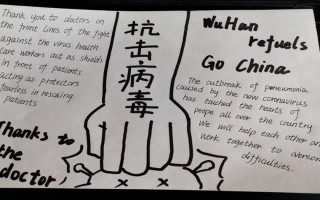 Thank you to doctors on
the front lines of the fight
against the virus health
care workers act as shields
in front of patients
acting as protectors
fearless in rescuing
patients
Thanks to
the
doctor
抗击病毒
WuHan
refuels
Go China
The outbreak of pneumonia
caused by the new coronavirus
has touched the hearts of
people all over the country
We will help each other and
work together to overcome
difficulties.